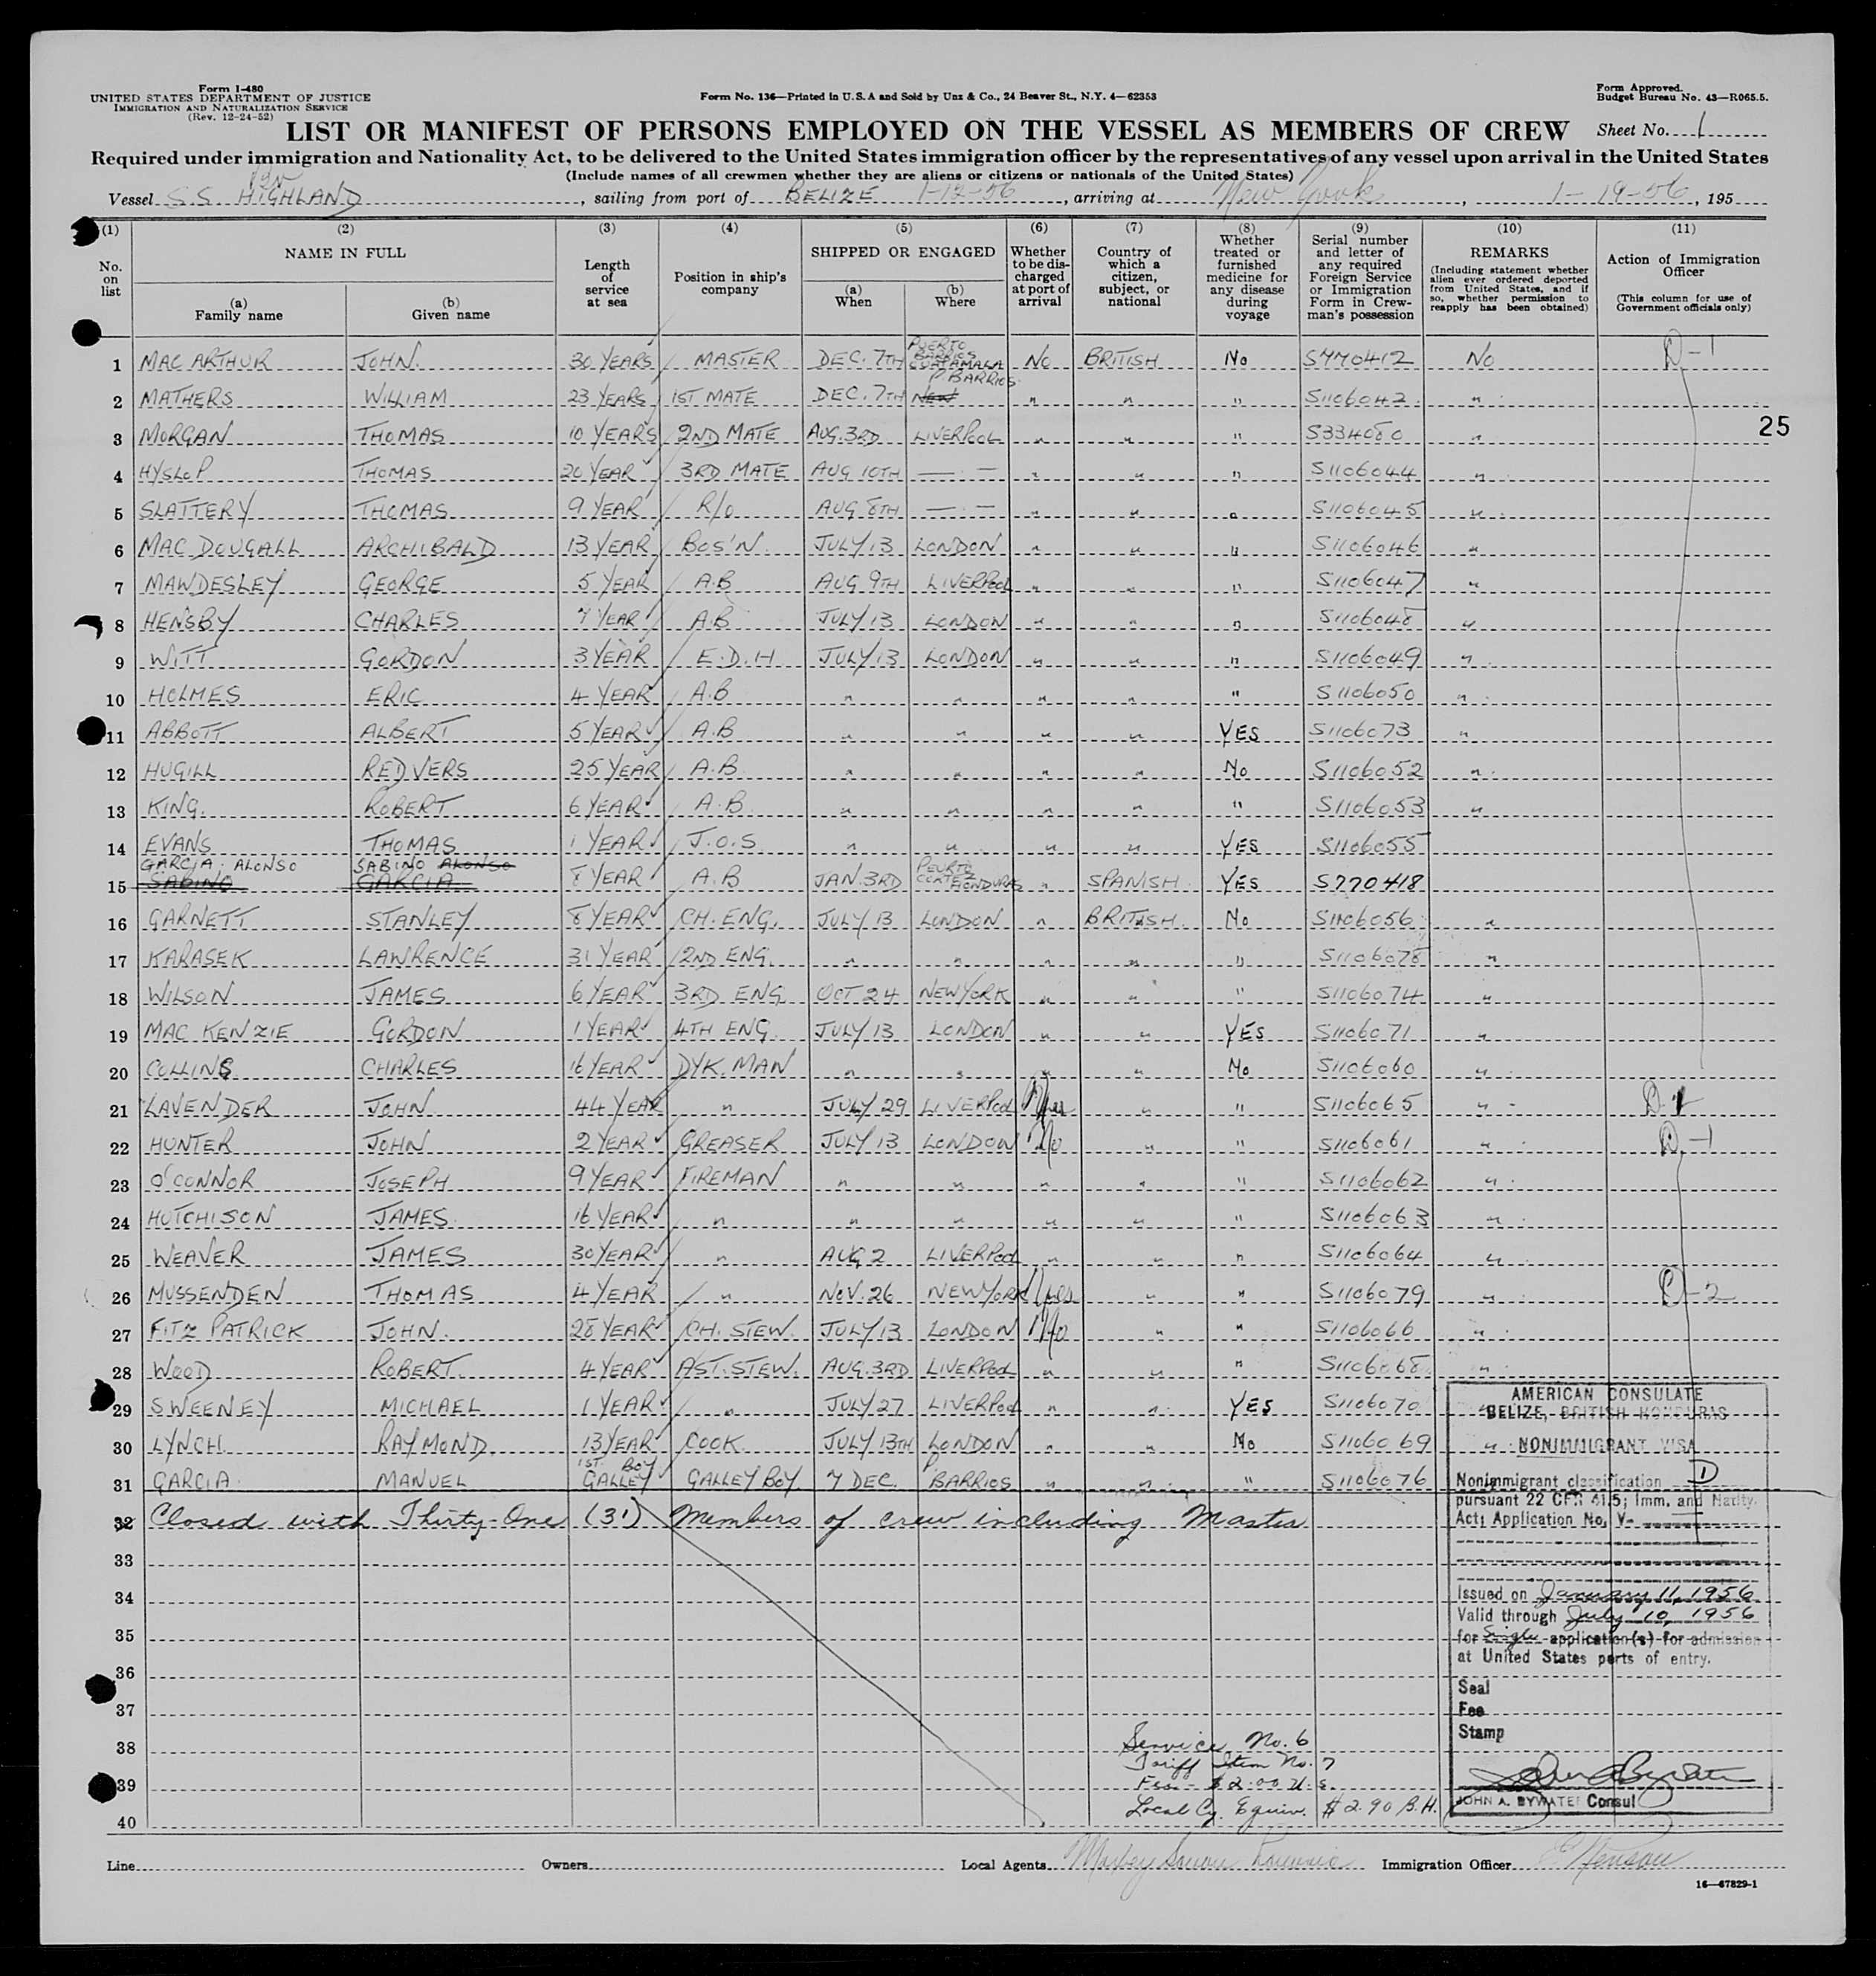 Form I-480
UNITED STATES DEPARTMENT OF JUSTICE
IMMIGRATION AND NATURALIZATION SERVICE
(Rev. 12-24-52)
Form No. 136—Printed in U.S.A and Sold by Unz & Co., 24 Beaver St., N.Y. 4—62353
Form Approved.
Budget Bureau No. 43—R065.5.
LIST OR MANIFEST OF PERSONS EMPLOYED ON THE VESSEL AS MEMBERS OF CREW Sheet No. 1
Required under immigration and Nationality Act, to be delivered to the United States immigration officer by the representatives of any vessel upon arrival in the United States
(Include names of all crewmen whether they are aliens or citizens or nationals of the United States)
Vessel S.S. HIGHLAND, sailing from port of BELIZE 1-12-56, arriving at New York, 1-19-56, 195
(1) (2) (3) (4) (5) (6) (7) (8) (9) (10) (11)
No. on list
NAME IN FULL
(a) Family name
(b) Given name
Length of service at sea
Position in ship's company
SHIPPED OR ENGAGED
(a) When
(b) Where
Whether to be discharged at port of arrival
Country of which a citizen, subject, or national
Whether treated or furnished medicine for any disease during voyage
Serial number and letter of any required Foreign Service or Immigration Form in Crewman's possession
REMARKS
(Including statement whether alien ever ordered deported from United States, and if so, whether permission to reapply has been obtained)
Action of Immigration Officer
(This column for use of Government officials only)
1 MAC ARTHUR JOHN. 30 YEARS MASTER DEC. 7TH PUERTO BARRIOS GUATAMALA NO BRITISH No S770412 NO D-1
2 MATHERS WILLIAM 23 YEARS 1ST MATE DEC. 7TH P. BARRIOS NEW " " " S1106042 "
3 MORGAN THOMAS 10 YEARS 2ND MATE AUG. 3RD LIVERPOOL " " " S334080 "
25
4 HYSLOP THOMAS 20 YEAR 3RD MATE AUG 10TH — — " " " S1106044 "
5 SLATTERY THOMAS 9 YEAR R/O AUG 8TH — — " " " S1106045 "
6 MAC DOUGALL ARCHIBALD 13 YEAR BOS'N JULY 13 LONDON " " " S1106046 "
7 MAWDESLEY GEORGE 5 YEAR A.B AUG 9TH LIVERPOOL " " " S1106047 "
8 HENSBY CHARLES 7 YEAR A.B JULY 13 LONDON " " " S1106048 "
9 WITT GORDON 3 YEAR E.D.H JULY 13 LONDON " " " S1106049 "
10 HOLMES ERIC 4 YEAR A.B " " " " " S1106050 "
11 ABBOTT ALBERT 5 YEAR A.B " " " " YES S1106073 "
12 HUGILL REDVERS 25 YEAR A.B. " " " " No S1106052 "
13 KING. ROBERT 6 YEAR A.B " " " " " S1106053 "
14 EVANS THOMAS 1 YEAR J.O.S " " " " YES S1106055
GARCIA ALONSO SABINO ALONSO
15 SABINO GARCIA 8 YEAR A.B JAN. 3RD PEURTO CORTEZ HONDURAS " SPANISH YES S770418
16 GARNETT STANLEY 8 YEAR CH. ENG. JULY 13 LONDON " BRITISH. No S1106056 "
17 KARASEK LAWRENCE 31 YEAR 2ND ENG. " " " " " S1106078 "
18 WILSON JAMES 6 YEAR 3RD ENG OCT 24 NEW YORK " " " S1106074 "
19 MAC KENZIE GORDON 1 YEAR 4TH ENG. JULY 13 LONDON " " YES S1106071 "
20 COLLINS CHARLES 16 YEAR DYK. MAN " " " " No S1106060 "
21 LAVENDER JOHN 44 YEAR " JULY 29 LIVERPOOL Yes " " S1106065 "
22 HUNTER JOHN 2 YEAR GREASER JULY 13 LONDON No " " S1106061 " D-1
23 O'CONNOR JOSEPH 9 YEAR FIREMAN " " " " " S1106062 "
24 HUTCHISON JAMES 16 YEAR " " " " " " S1106063 "
25 WEAVER JAMES 30 YEAR " AUG 2 LIVERPOOL " " " S1106064 "
26 MUSSENDEN THOMAS 4 YEAR " NOV. 26 NEW YORK Yes " " S1106079 " D-2
27 FITZ PATRICK JOHN. 28 YEAR CH. STEW. JULY 13 LONDON No " " S1106066 "
28 WOOD ROBERT. 4 YEAR AST. STEW. AUG. 3RD LIVERPOOL " " " S1106068 "
29 SWEENEY MICHAEL 1 YEAR " JULY 27 LIVERPOOL " " YES S1106070 "
30 LYNCH. RAYMOND. 13 YEAR COOK. JULY 13TH LONDON " " No S1106069 "
31 GARCIA. MANUEL 1ST. BOY GALLEY GALLEY BOY. 7 DEC. P BARRIOS " " " S1106076
32 Closed with Thirty-One (31) Members of crew including Master
33
34
35
36
37
38
39
40
AMERICAN CONSULATE
BELIZE, BRITISH HONDURAS
NONIMMIGRANT VISA
Nonimmigrant classification D
pursuant 22 CFR 41.5; Imm. and Natlty.
Act; Application No. V-
Issued on January 11, 1956
Valid through July 10, 1956
for Single application(s) for admission
at United States ports of entry.
Seal
Fee
Stamp
JOHN A. BYWATER Consul
Service No. 6
Tariff Item No. 7
Fee - $2.00 U.S.
Local Cy. Equiv. $2.90 B.H.
Line Owners Local Agents Immigration Officer
16—67829-1